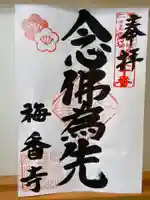 奉拝
念佛為先
梅香寺